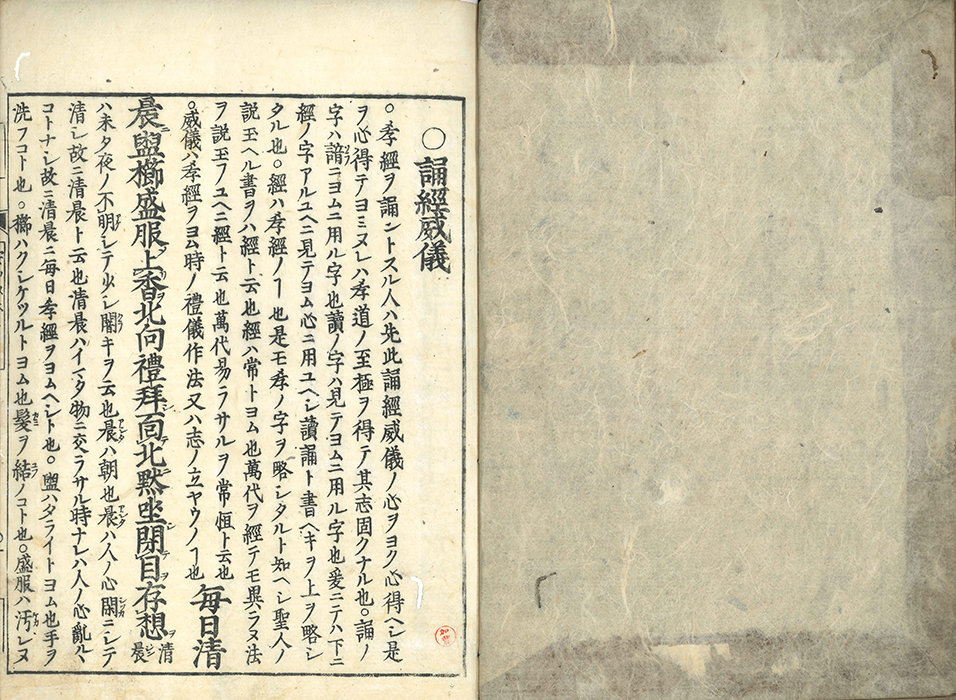 ○誦經威儀
○孝經ヲ誦ントスル人ハ先此誦經威儀ノ心ヲヨク心得ヘシ是
ヲ心得テヨミヌレハ孝道ノ至極ヲ得テ其志固クナル也○誦ノ
字ハ諳ニヨムニ用ル字也讀ノ字ハ見テヨムニ用ル字也爰ニテハ下ニ
經ノ字アルユヘニ見テヨム心ニ用ユヘシ讀誦ト書ヘキヲ上ヲ略シ
タル也○經ハ孝經ノヿ也是モ孝ノ字ヲ略シタルト知ヘシ聖人ノ
説玉ヘル書ヲハ經ト云也經ハ常トヨム也萬代ヲ經テモ異ラヌ法
ヲ説玉フユヘニ經ト云也萬代易ラサルヲ常恒ト云也
○威儀ハ孝經ヲヨム時ノ禮儀作法又ハ志ノ立ヤウノヿ也 每日清
晨盥櫛盛服上香北向禮拜向北默坐閉目存想 清晨
ハ未タ夜ノ不明シテ少シ闇キヲ云也晨ハ朝也晨ハ人ノ心閑ニシテ
清シ故ニ清晨ト云也清晨ハイマタ物ニ交ラサル時ナレハ人ノ心亂ルヽ
コトナシ故ニ清晨ニ每日孝經ヲヨムヘシト也○盥ハタライトヨム也手ヲ
洗フコト也○櫛ハクシケツルトヨム也髮ヲ結ノコト也○盛服ハ汚レヌ